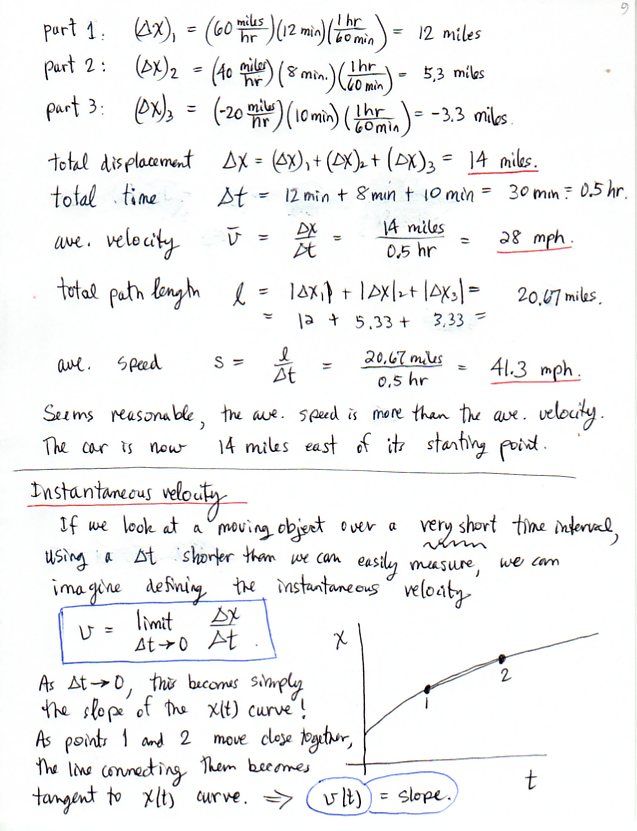 9
part 1: (Δx)₁ = (60 miles/hr)(12 min)(1hr/60min) = 12 miles
part 2: (Δx)₂ = (40 miles/hr)(8 min.)(1hr/60min) = 5,3 miles
part 3: (Δx)₃ = (-20 miles/hr)(10min)(1hr/60min) = -3.3 miles.
total displacement Δx = (Δx)₁ + (Δx)₂ + (Δx)₃ = 14 miles.
total time Δt = 12 min + 8 min + 10 min = 30 min = 0.5 hr.
ave. velocity v̄ = Δx/Δt = 14 miles/0.5 hr = 28 mph.
total path length l = |Δx₁| + |Δx|₂ + |Δx₃| = 20.67 miles.
= 12 + 5.33 + 3.33 =
ave. speed s = l/Δt = 20.67 miles/0.5 hr = 41.3 mph.
Seems reasonable, the ave. speed is more than the ave. velocity.
The car is now 14 miles east of its starting point.
Instantaneous velocity
If we look at a moving object over a very short time interval,
using a Δt shorter than we can easily measure, we can
imagine defining the instantaneous velocity
v = limit Δt→0 Δx/Δt.
As Δt→0, this becomes simply
the slope of the x(t) curve!
As points 1 and 2 move close together,
the line connecting them becomes
tangent to x(t) curve. ⇒ v(t) = slope.
x
1
2
t